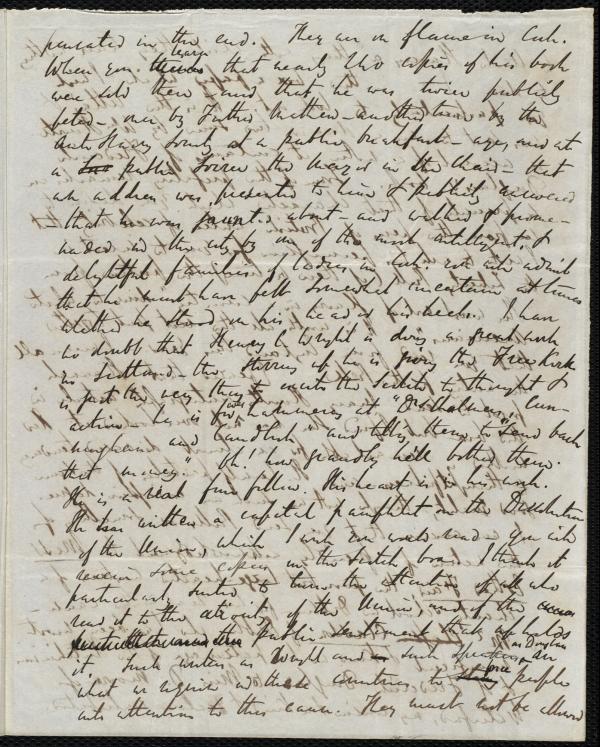 in the end. They are in flame in Cork.
When you learn that nearly two copies of his book
were sold there and that he was twice publicly
feted – once by Father Mathew – another time by the
Anti Slavery Society at a public breakfast – again, and at
a public Soiree the Mayor in the Chair – that
an address was presented to him & publicly answered
– that he was about – and walked & prome-
naded in the city by one of the most intelligent, &
delightful families of ladies in Cork. You will admit
that he must have felt somewhat uncertain at times
whether he stood on his head or his heels. I have
no doubt that Henry C Wright is doing a great work
in Scotland – the stirring up he is giving the Free Kirk
is just the very thing to excite the Scotch to thought &
action – he is for hammering at "Drs Chalmers, Cun-
ningham and Candlish" and telling them to "Send back
that money" Oh! how grandly he'll bother them.
He is a real fine fellow. His heart is in his work.
He has written a capital pamphlet on the Dissolution
of the Union, which I wish you would read – you will
receive some copies in the Scotch box. I think it
particularly suited to turn the attention of all who
read it to the atrocity of the Union, and of the
public sentiment that upholds
it. Such writers as Wright and such speakers as Douglass are
what we require in these countries to force people
attention to this cause. They must not be allowed